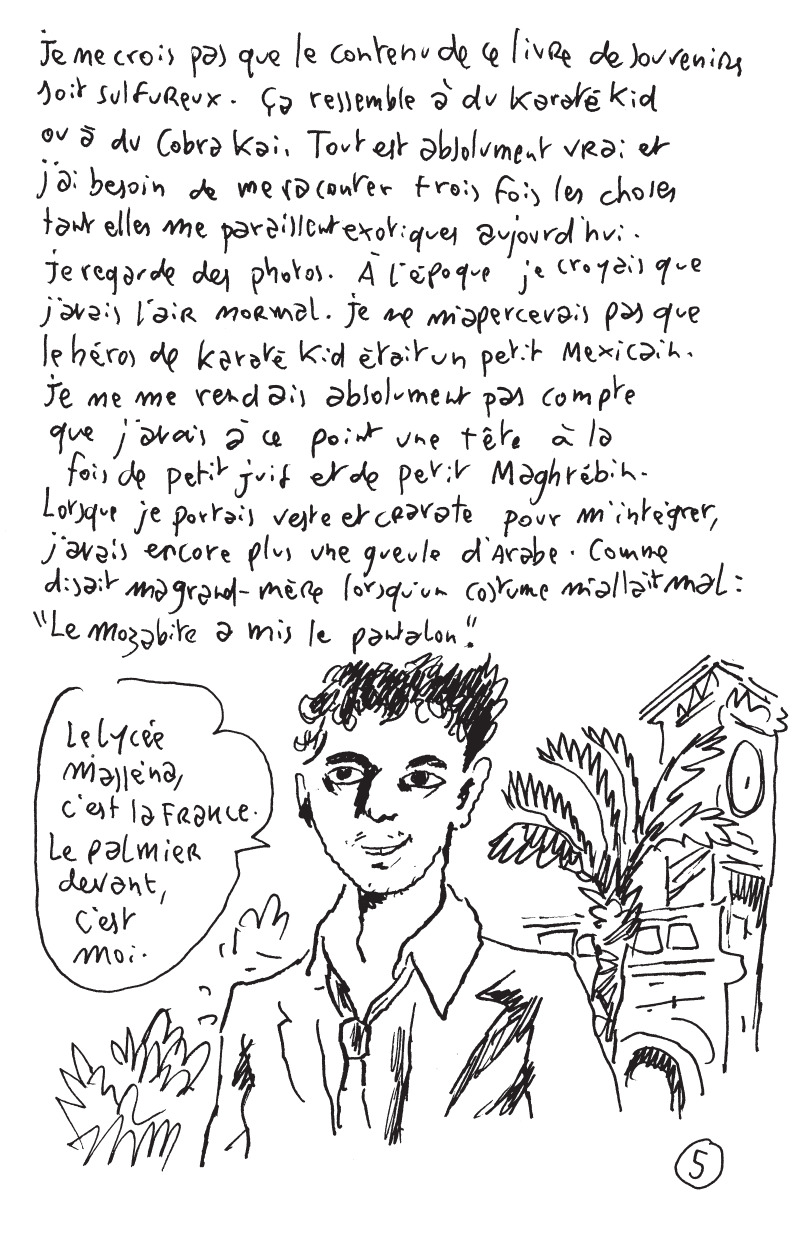 Je ne crois pas que le contenu de ce livre de souvenirs
soit sulfureux. Ça ressemble à du Karaté Kid
ou à du Cobra Kai. Tout est absolument vrai et
j'ai besoin de me raconter trois fois les choses
tant elles me paraissent exotiques aujourd'hui.
Je regarde des photos. À l'époque je croyais que
j'avais l'air normal. Je ne m'apercevais pas que
le héros de Karaté Kid était un petit Mexicain.
Je ne me rendais absolument pas compte
que j'avais à ce point une tête à la
fois de petit juif et de petit Maghrébin.
Lorsque je portais veste et cravate pour m'intégrer,
j'avais encore plus une gueule d'Arabe. Comme
disait ma grand-mère lorsqu'un costume m'allait mal :
"Le Mozabite a mis le pantalon."
Le lycée
Masséna,
c'est la France.
Le palmier
devant,
c'est
moi.
5